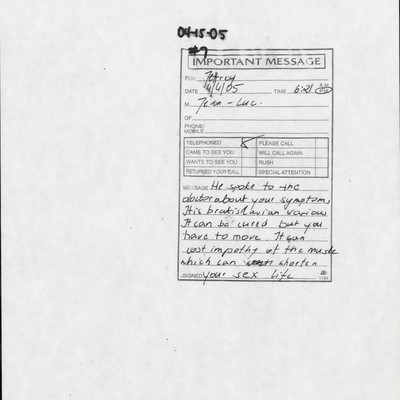 04-15-05
#7
IMPORTANT MESSAGE
FOR Jeffrey
DATE 4/4/05 TIME 6:21 A.M. P.M.
M Jean-Luc.
OF
PHONE/
MOBILE
TELEPHONED ✓ PLEASE CALL
CAME TO SEE YOU WILL CALL AGAIN
WANTS TO SEE YOU RUSH
RETURNED YOUR CALL SPECIAL ATTENTION
MESSAGE He spoke to the
doctor about your symptoms
It is
It can be cured but you
have to move. It can
cost of the muscle
which can shorten
SIGNED your sex life
1184